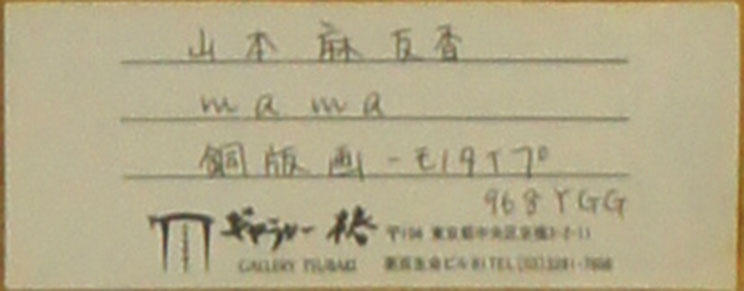 山本麻友香
mama
銅版画-モノタイプ
968YGG
ギャラリー椿 〒104 東京都中央区京橋3-2-11
GALLERY TSUBAKI 第百生命ビルB1 TEL (03)3281-7808